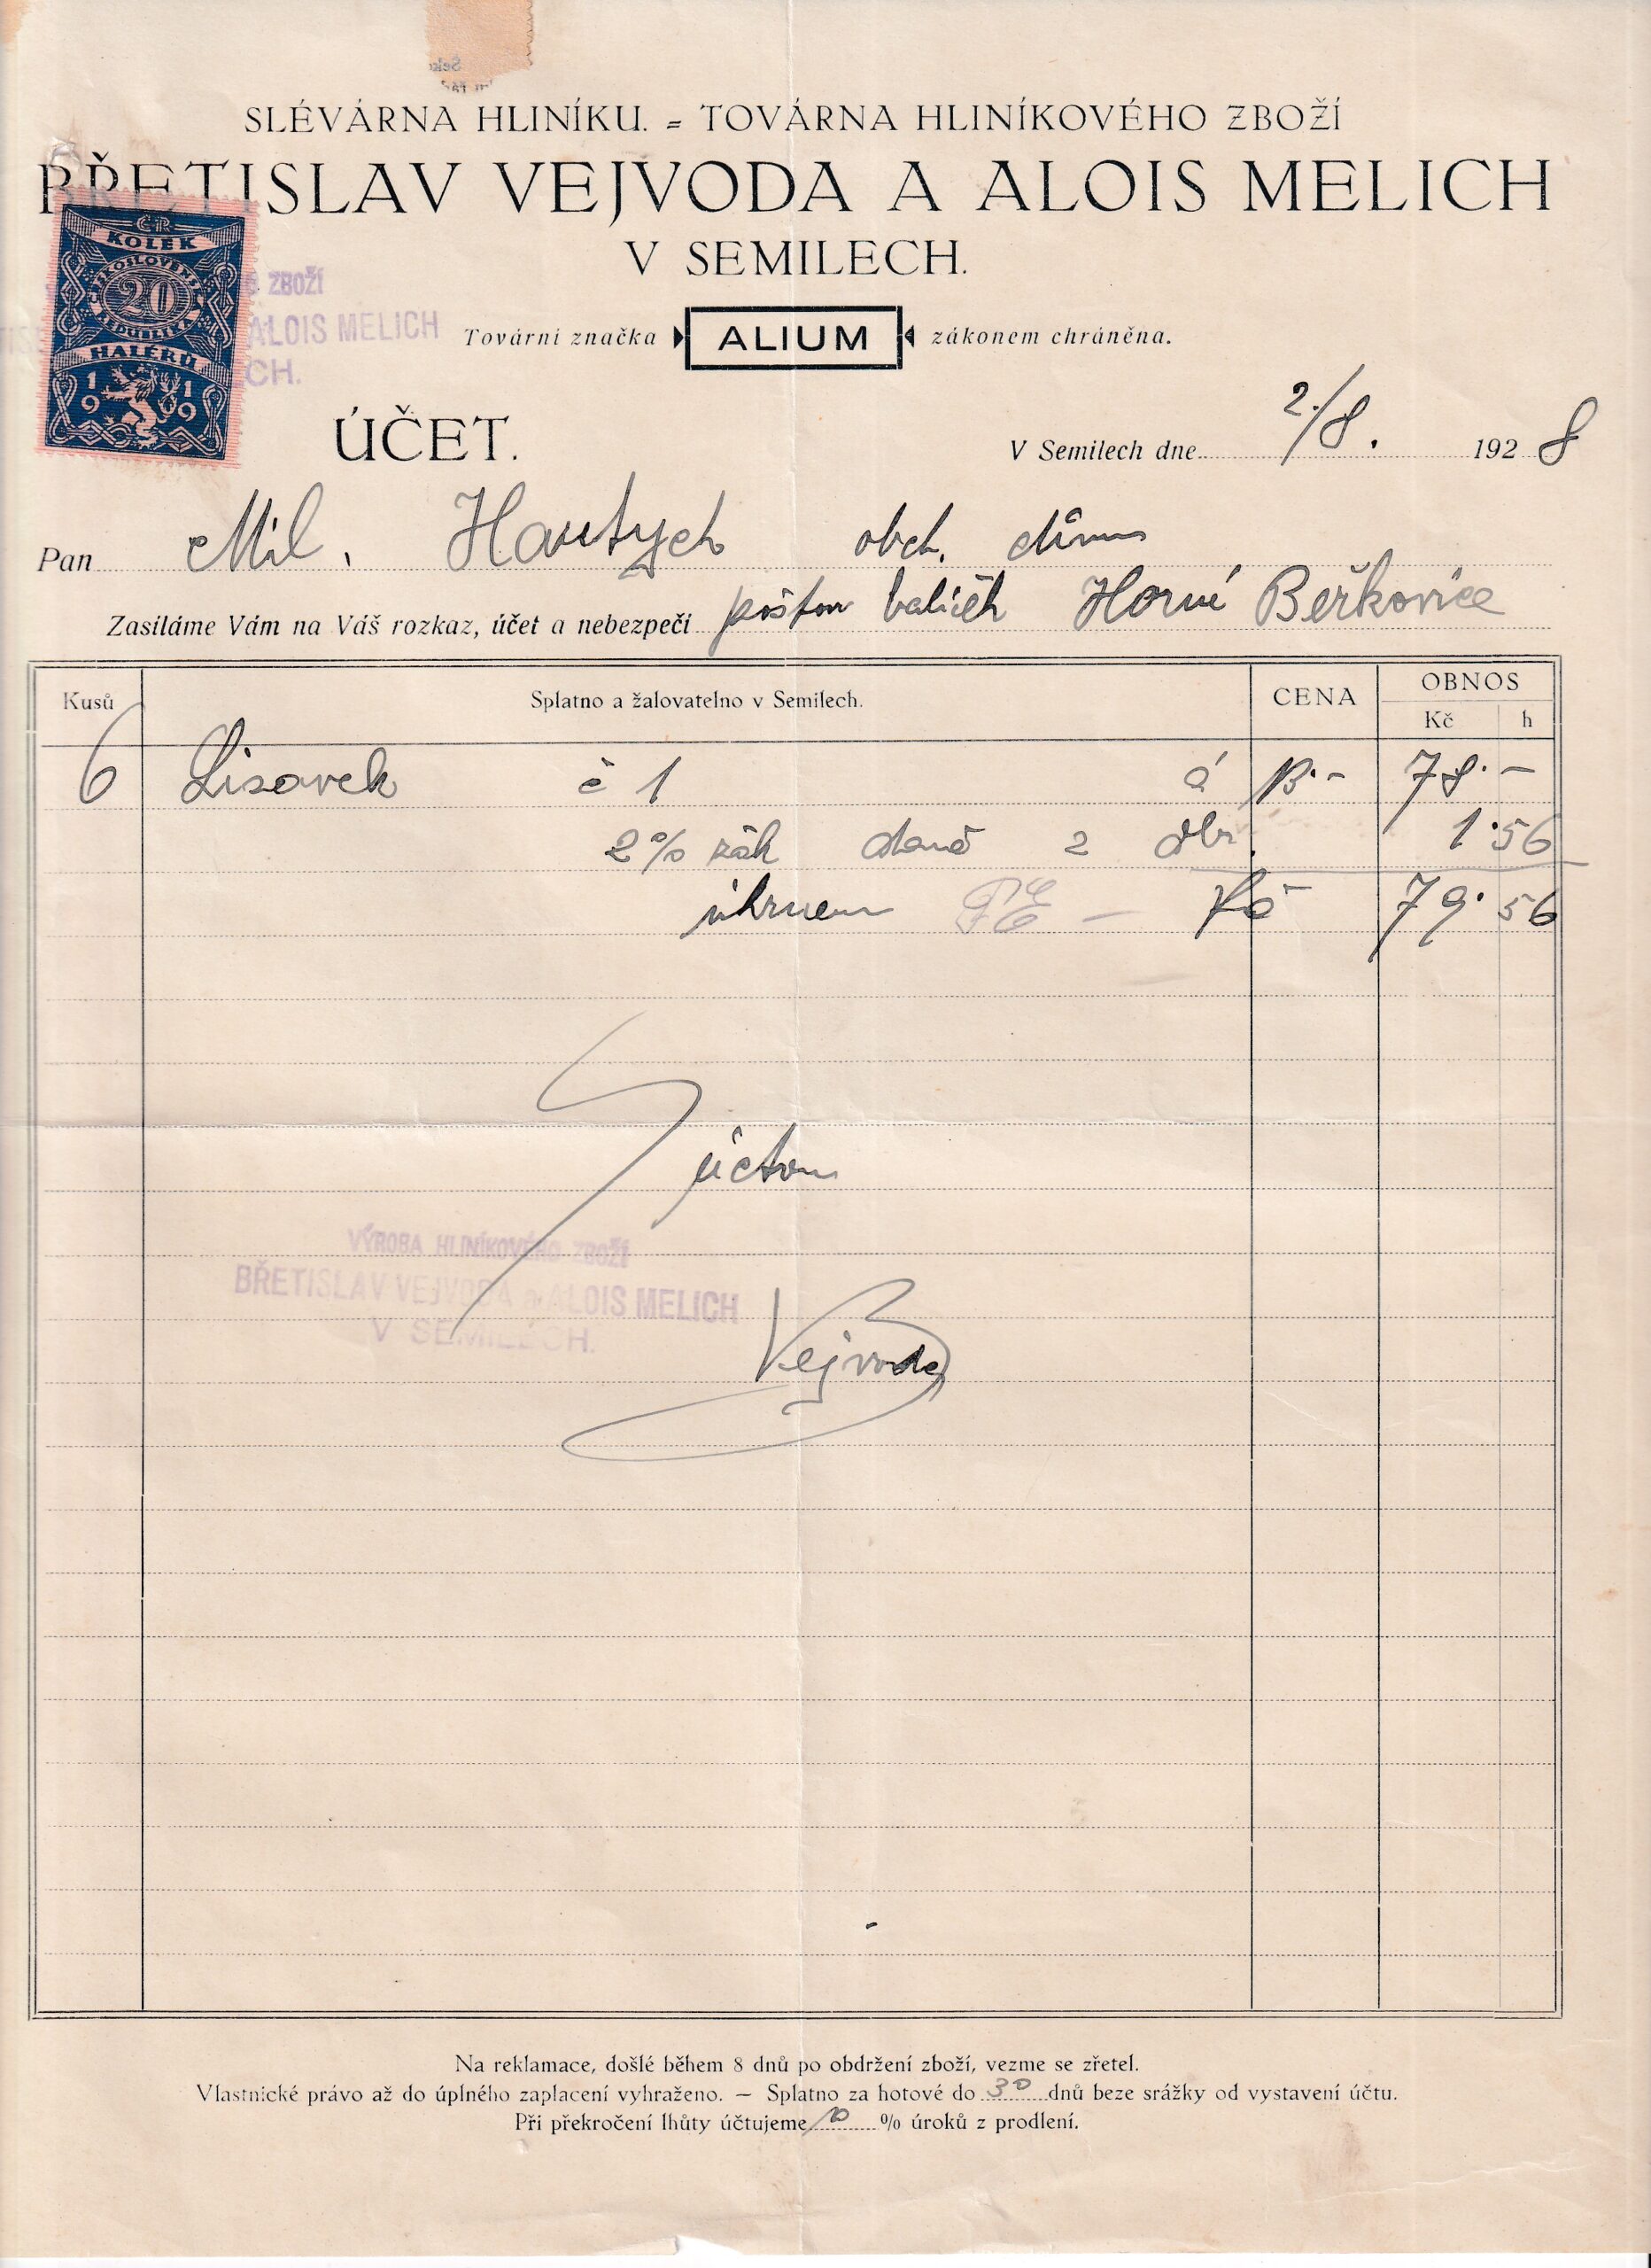 SLÉVÁRNA HLINÍKU. = TOVÁRNA HLINÍKOVÉHO ZBOŽÍ
BŘETISLAV VEJVODA A ALOIS MELICH
V SEMILECH.
ČR
KOLEK
ČESKOSLOVENSKÁ
20
REPUBLIKA
HALÉŘŮ
1919
ZBOŽÍ
ALOIS MELICH
CH.
Tovární značka ALIUM zákonem chráněna.
ÚČET.
V Semilech dne 2./8. 1928
Pan Mil. Hautych obch. dům
Zasíláme Vám na Váš rozkaz, účet a nebezpečí poštou balíček Horní Beřkovice
Kusů Splatno a žalovatelno v Semilech. CENA OBNOS
Kč h
6 Lisovek č 1 á 13.- 78.-
2% daně z obr. 1.56
úhrnem Kč 79.56
S úctou
VÝROBA HLINÍKOVÉHO ZBOŽÍ
BŘETISLAV VEJVODA a ALOIS MELICH
V SEMILECH.
Vejvoda
Na reklamace, došlé během 8 dnů po obdržení zboží, vezme se zřetel.
Vlastnické právo až do úplného zaplacení vyhraženo. — Splatno za hotové do 30 dnů beze srážky od vystavení účtu.
Při překročení lhůty účtujeme 10 % úroků z prodlení.